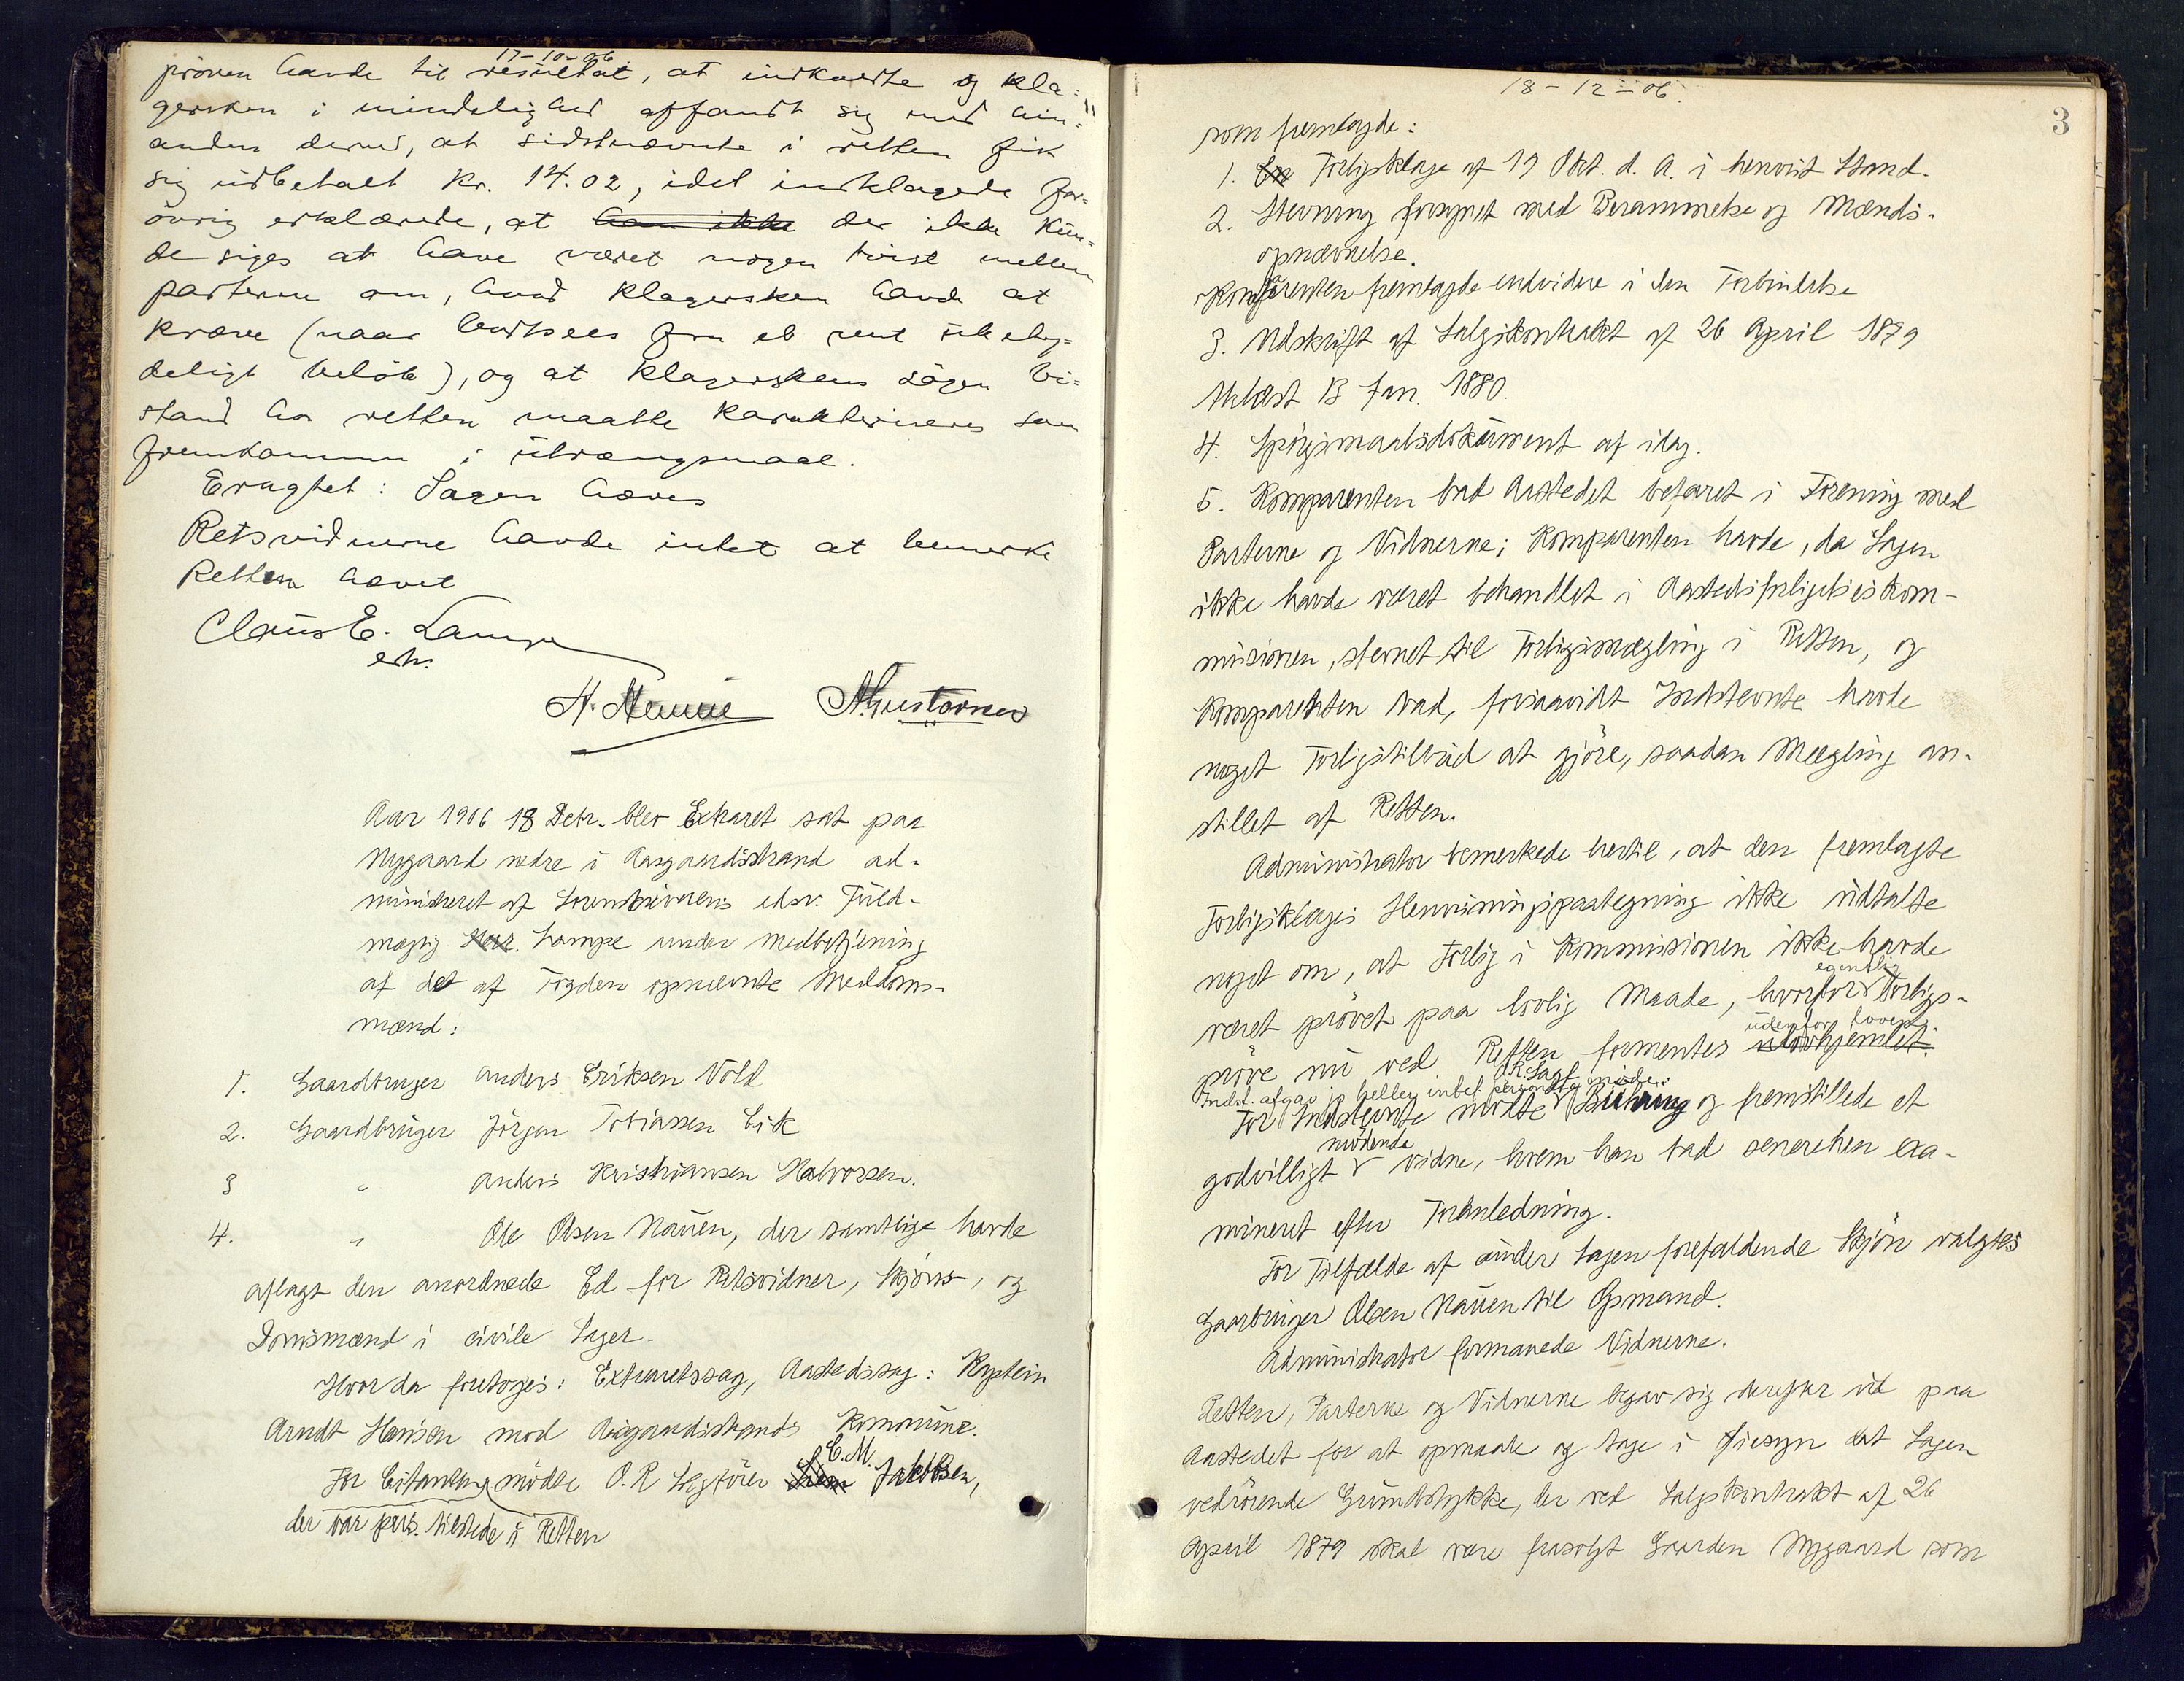 17-10-06
prøven havde til resultat, at indkaldte og kla-
gersken i mindelighed affandt sig med hin-
anden derved, at sidstnævnte i retten fik
sig udbetalt Kr. 14.02, idet indklagede for-
øvrig erklærede, at han ikke der ikke kun-
de siges at have været nogen tvist mellem
parterne om, hvad klagersken havde at
kræve (naar bortsees fra et rent ubety-
deligt beløb), og at klagerskens søgen bi-
stand hos retten maatte karakteriseres som
fremkommen i utrængsmaal.
Eragtet: Sagen hæves
Retsvidnerne havde intet at bemerke
Retten hævet
Claus E. Lampe
eh.
H. Gustavsen
Aar 1906 18 Decbr. blev Extraret sat paa
Nygaard nedre i Aasgaardsstrand ad-
ministreret af Sorenskriverens edsv. Fuld-
mægtig Lampe under medbetjening
af det af Fogden opnævnte Meddoms-
mænd:
1. Gaardbruger Anders Eriksen Vold
2. Gaardbruger Jörgen Tobiassen Eik
3 " Anders Kristiansen Halvorsen.
4. " Ole Olsen Nauen, der samtlige havde
aflagt den anordnede Ed for Retsvidner, Skjöns-, og
Domsmænd i civile Sager.
Hvorda foretoges: Extraretssag, Aastedssag: Kaptein
Arndt Hansen mod Aasgaardsstrands Kommune.
C.M.
For Citanten mödte O.R Sagförer Jakobsen,
der var pers. tilstede i Retten
18-12-06.
3
som fremlagde:
1. Forligsklage af 19 Okt. d. A. i henvist Stand.
2. Stevning forsynet med Berammelse og Mænds-
opnævnelse.
Komparenten fremlagde endvidere i den Forbindelse
3. Udskrift af Salgskontrakt af 26 April 1879
thlæst 13 Jan. 1880.
4. Spörgsmaalsdokument af idag.
5. Komparenten bad Aastedet befaret i Forening med
Parterne og Vidnerne; Komparenten havde, da Sagen
ikke havde været behandlet i Aastedsforligelseskom-
missionen, stevnet til Forligsmægling i Retten, og
Komparenten bad, forsaavidt Indstevnte havde
noget Forligstilbud at gjöre, saadan Mægling an-
stillet af Retten.
Administrator bemerkede hertil, at den fremlagte
Forligsklages Henvisningspaategning ikke udtalte
noget om, at Forlig i Kommissionen ikke havde
egentlig
været prövet paa lovlig Maade, hvorfor Forligs-
udenfor Loven.
pröve nu ved Retten formentes ulovhjemlet.
Indst. afgav jo heller intet personlig möde.
O.R. Sagf.
For Indstevnte mödte Bühring og fremstillede et
mödende
godvilligt Vidne, hvem han bad senerehen exa-
mineret efter Foranledning.
For Tilfælde af under Sagen forefaldende Skjön valgtes
Gaarbruger Olsen Nauen til Opmand.
Administrator formanede Vidnerne.
Retten, Parterne og Vidnerne begav sig derefter ud paa
Aastedet for at opmaale og tage i Öiesyn det Sagen
vedrörende Grundstykke, der ved Salgskontrakt af 26
April 1879 skal være frasolgt Gaarden Nygaard som